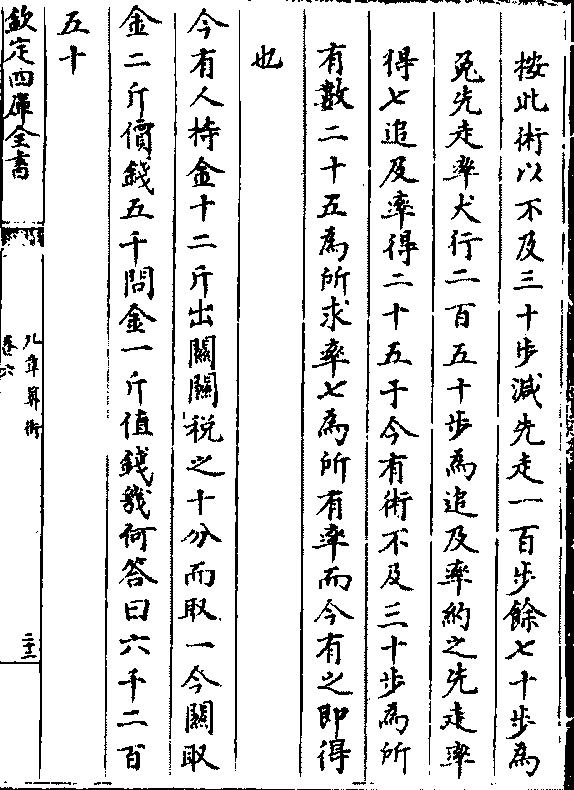 按此術以不及三十步減先走一百步餘七十步為
兔先走率犬行二百五十步為追及率約之先走率
得七追及率得二十五于今有術不及三十步為所
有數二十五為所求率七為所有率而今有之即得
也
今有人持金十二斤出關關税之十分而取一今關取
金二斤價錢五千問金一斤值錢幾何答曰六千二百
五十
欽定四庫全書
九章算術
卷六
二十二